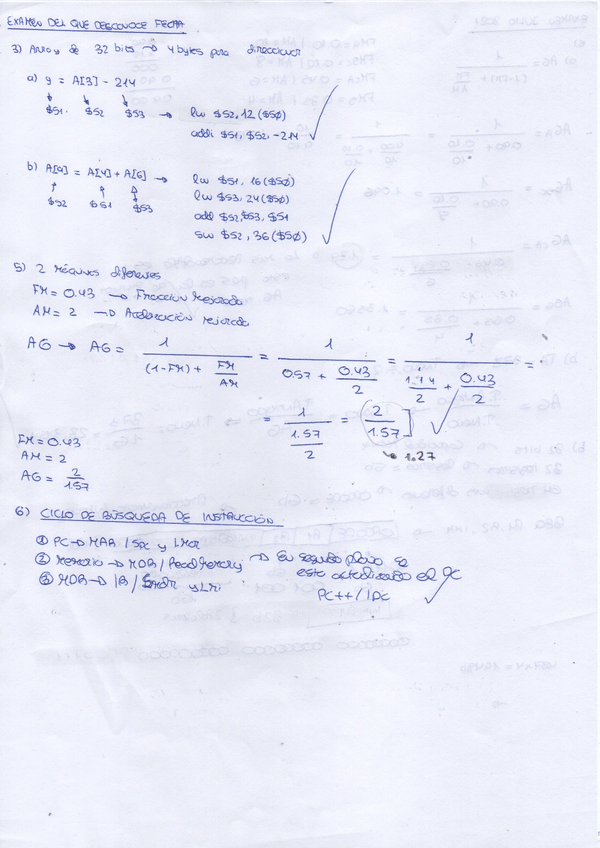 EXAMEN DEL QUE DESCONOCE FECHA
3) Array de 32 bits → 4 bytes para direccionar
a) y = A[3] - 214
$S1 $S2 $S3 → lw $S2, 12($S0)
addi $S1, $S2, -214
b) A[9] = A[4] + A[6] → lw $S1, 16($S0)
$S2 $S1 $S3 lw $S3, 24($S0)
add $S2, $S3, $S1
sw $S2, 36($S0)
5) 2 máquinas diferentes
FM = 0.43 → Fracción Mejorada
AM = 2 → Aceleración mejorada
AG → AG = 1 / ((1-FM) + FM/AM) = 1 / (0.57 + 0.43/2) = 1 / (1.14/2 + 0.43/2) =
= 1 / (1.57/2) = (2/1.57]
→ 1.27
FM = 0.43
AM = 2
AG = 2/1.57
6) CICLO DE BÚSQUEDA DE INSTRUCCIÓN
① PC → MAR / Spc y LMar
② Memoria → MDR / Read Memory → En segundo plano se
está actualizando el PC
③ MDR → IR / Smdr y LRi
PC++ / IPC